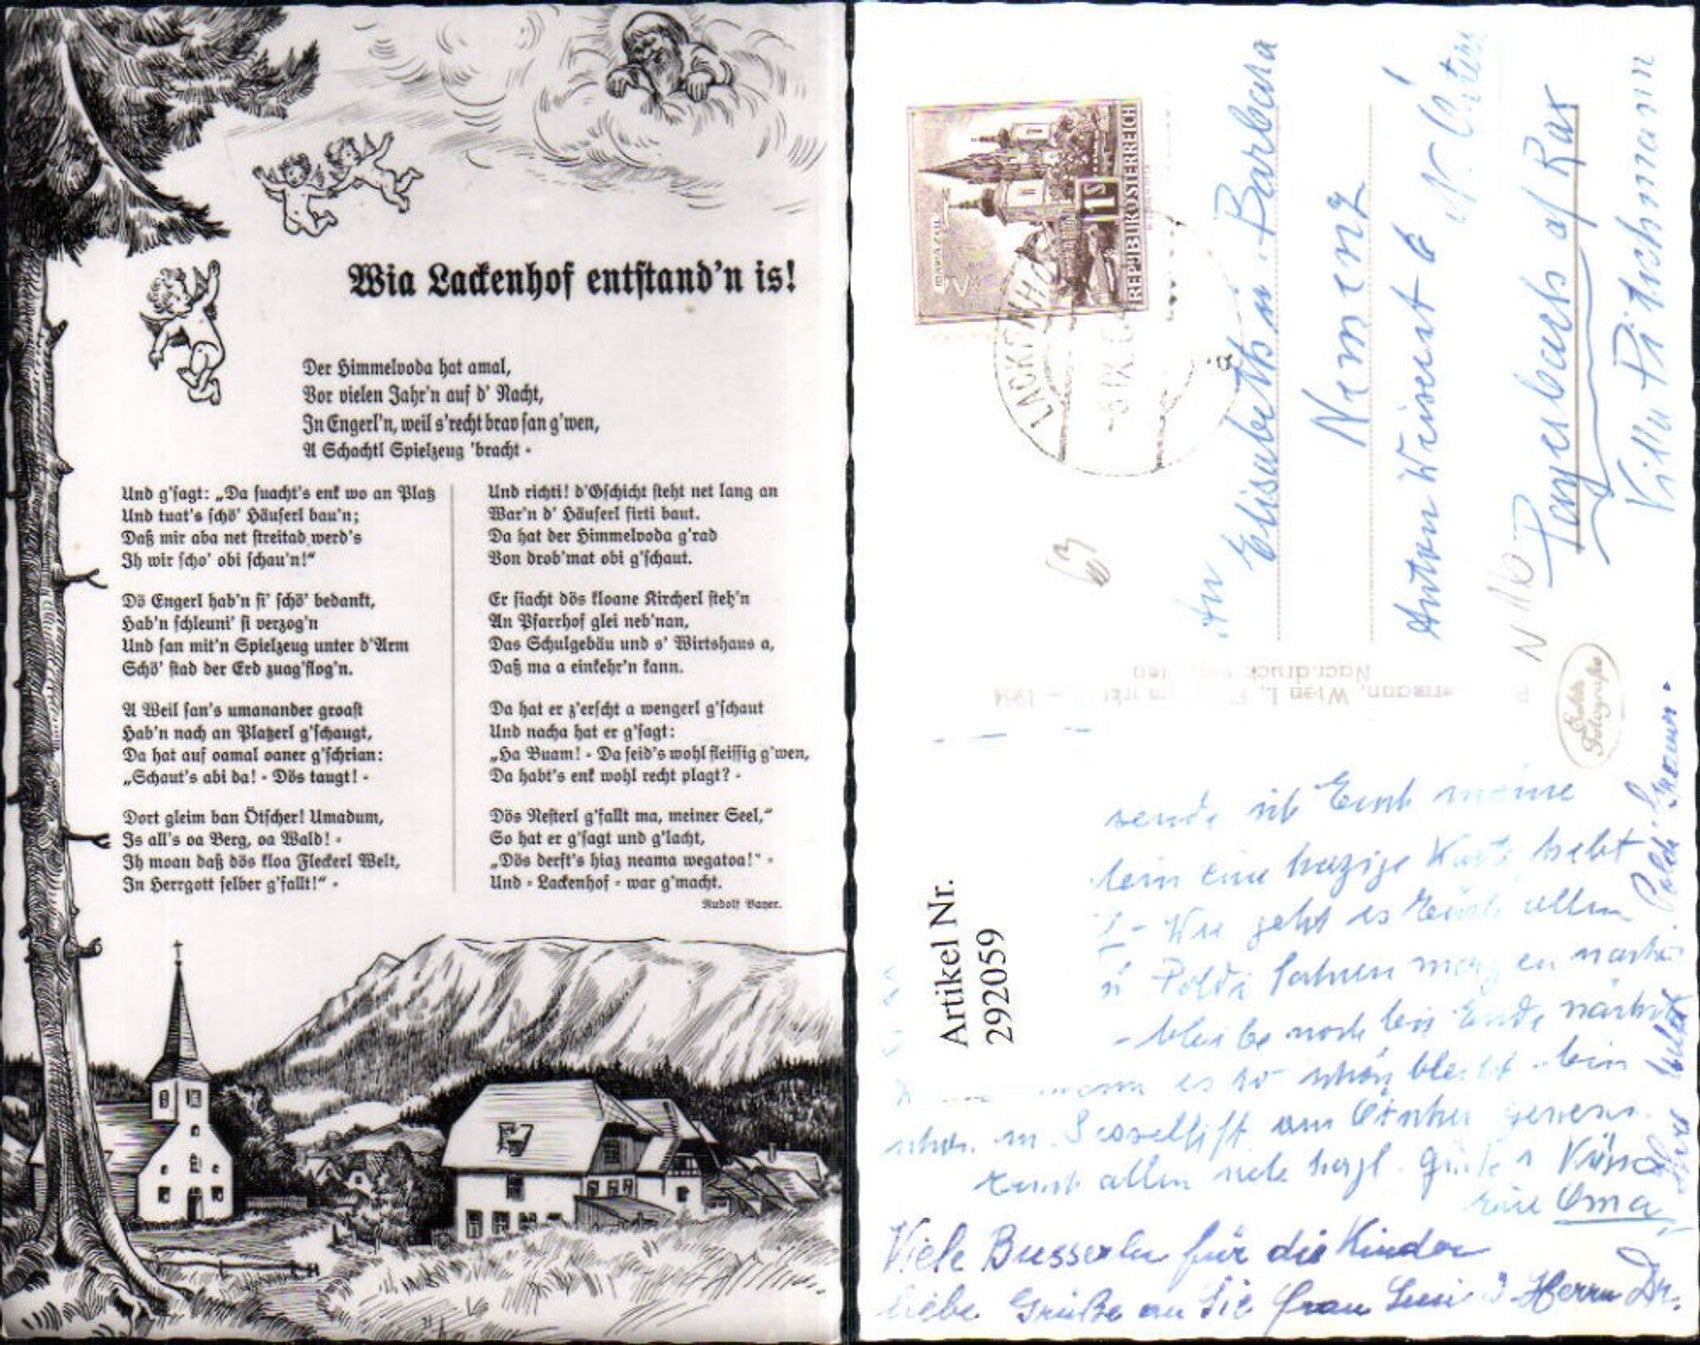 Wia Lackenhof entstand'n is!
Der Himmelvoda hat amal,
Vor vielen Jahr'n auf d' Nacht,
In Engerl'n, weil s'recht brav san g'wen,
A Schachtl Spielzeug 'bracht -
Und g'sagt: „Da suacht's enk wo an Platz
Und tuat's schö' Häuserl bau'n;
Daß mir aba net streitad werd's
Ih wir scho' obi schau'n!“
Dö Engerl hab'n si' schö' bedankt,
Hab'n schleuni' si verzog'n
Und san mit'n Spielzeug unter d'Arm
Schö' stad der Erd zuag'flog'n.
A Weil san's umanander groast
Hab'n nach an Platzerl g'schaugt,
Da hat auf oamal oaner g'schrian:
„Schaut's abi da! - Dös taugt! -
Dort gleim ban Ötscher! Umadum,
Is all's oa Berg, oa Wald! -
Ih moan daß dös kloa Fleckerl Welt,
In Herrgott selber g'fallt!“ -
Und richti! d'Gschicht steht net lang an
War'n d' Häuserl firti baut.
Da hat der Himmelvoda g'rad
Von drob'mat obi g'schaut.
Er siacht dös kloane Kircherl steh'n
An Pfarrhof glei neb'nan,
Das Schulgebäu und s' Wirtshaus a,
Daß ma a einkehr'n kann.
Da hat er z'erscht a wengerl g'schaut
Und nacha hat er g'sagt:
„Ha Buam! - Da seid's wohl fleissig g'wen,
Da habt's enk wohl recht plagt? -
Dös Nesterl g'fallt ma, meiner Seel,“
So hat er g'sagt und g'lacht,
„Dös derft's hiaz neama wegatoa!“ -
Und - Lackenhof - war g'macht.
Rudolf Bayer.
MARIAZELL
1 S
REPUBLIK ÖSTERREICH
LACKENHOF
-5.IX.6
An
Elisabeth u. Barbara
Nemenz
Anton Wisent 6
Payerbach a/ Rax
Villa Pitschmann
63
N 116
Echte
Fotografie
Wien I.
Artikel Nr.
292059
sende ich Euch meine
eine herzige Karte, habt
Wie geht es Euch allen
Poldi fahren morgen nach
bleibe noch bis Ende nächst
wenn es so schön bleibt - bin
schon m. Sessellift am Ötscher gewesen.
Euch allen viele herzl. Grüße u Küsse
Eure Oma
Viele Busserln für die Kinder
liebe Grüße an Sie Frau Susi u Herrn Dr.